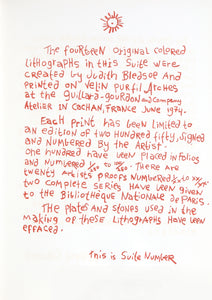 The fourteen original colored
lithographs in this Suite were
created by Judith Bledsoe and
printed on Velin purfil Arches
at the Guillard-Gourdon and Company
Atelier in Cachan, France June 1974.
Each Print has been limited to
an edition of two hundred fifty, signed
and numbered By the Artist.
One hundred have been placed in Folios
and numbered 1/250 to 100/250. There are
twenty artists proofs numbered to
two complete series have been given
to the Bibliothèque Nationale de Paris.
The plates and stones used in the
making of these lithographs have been
effaced.
This is Suite Number